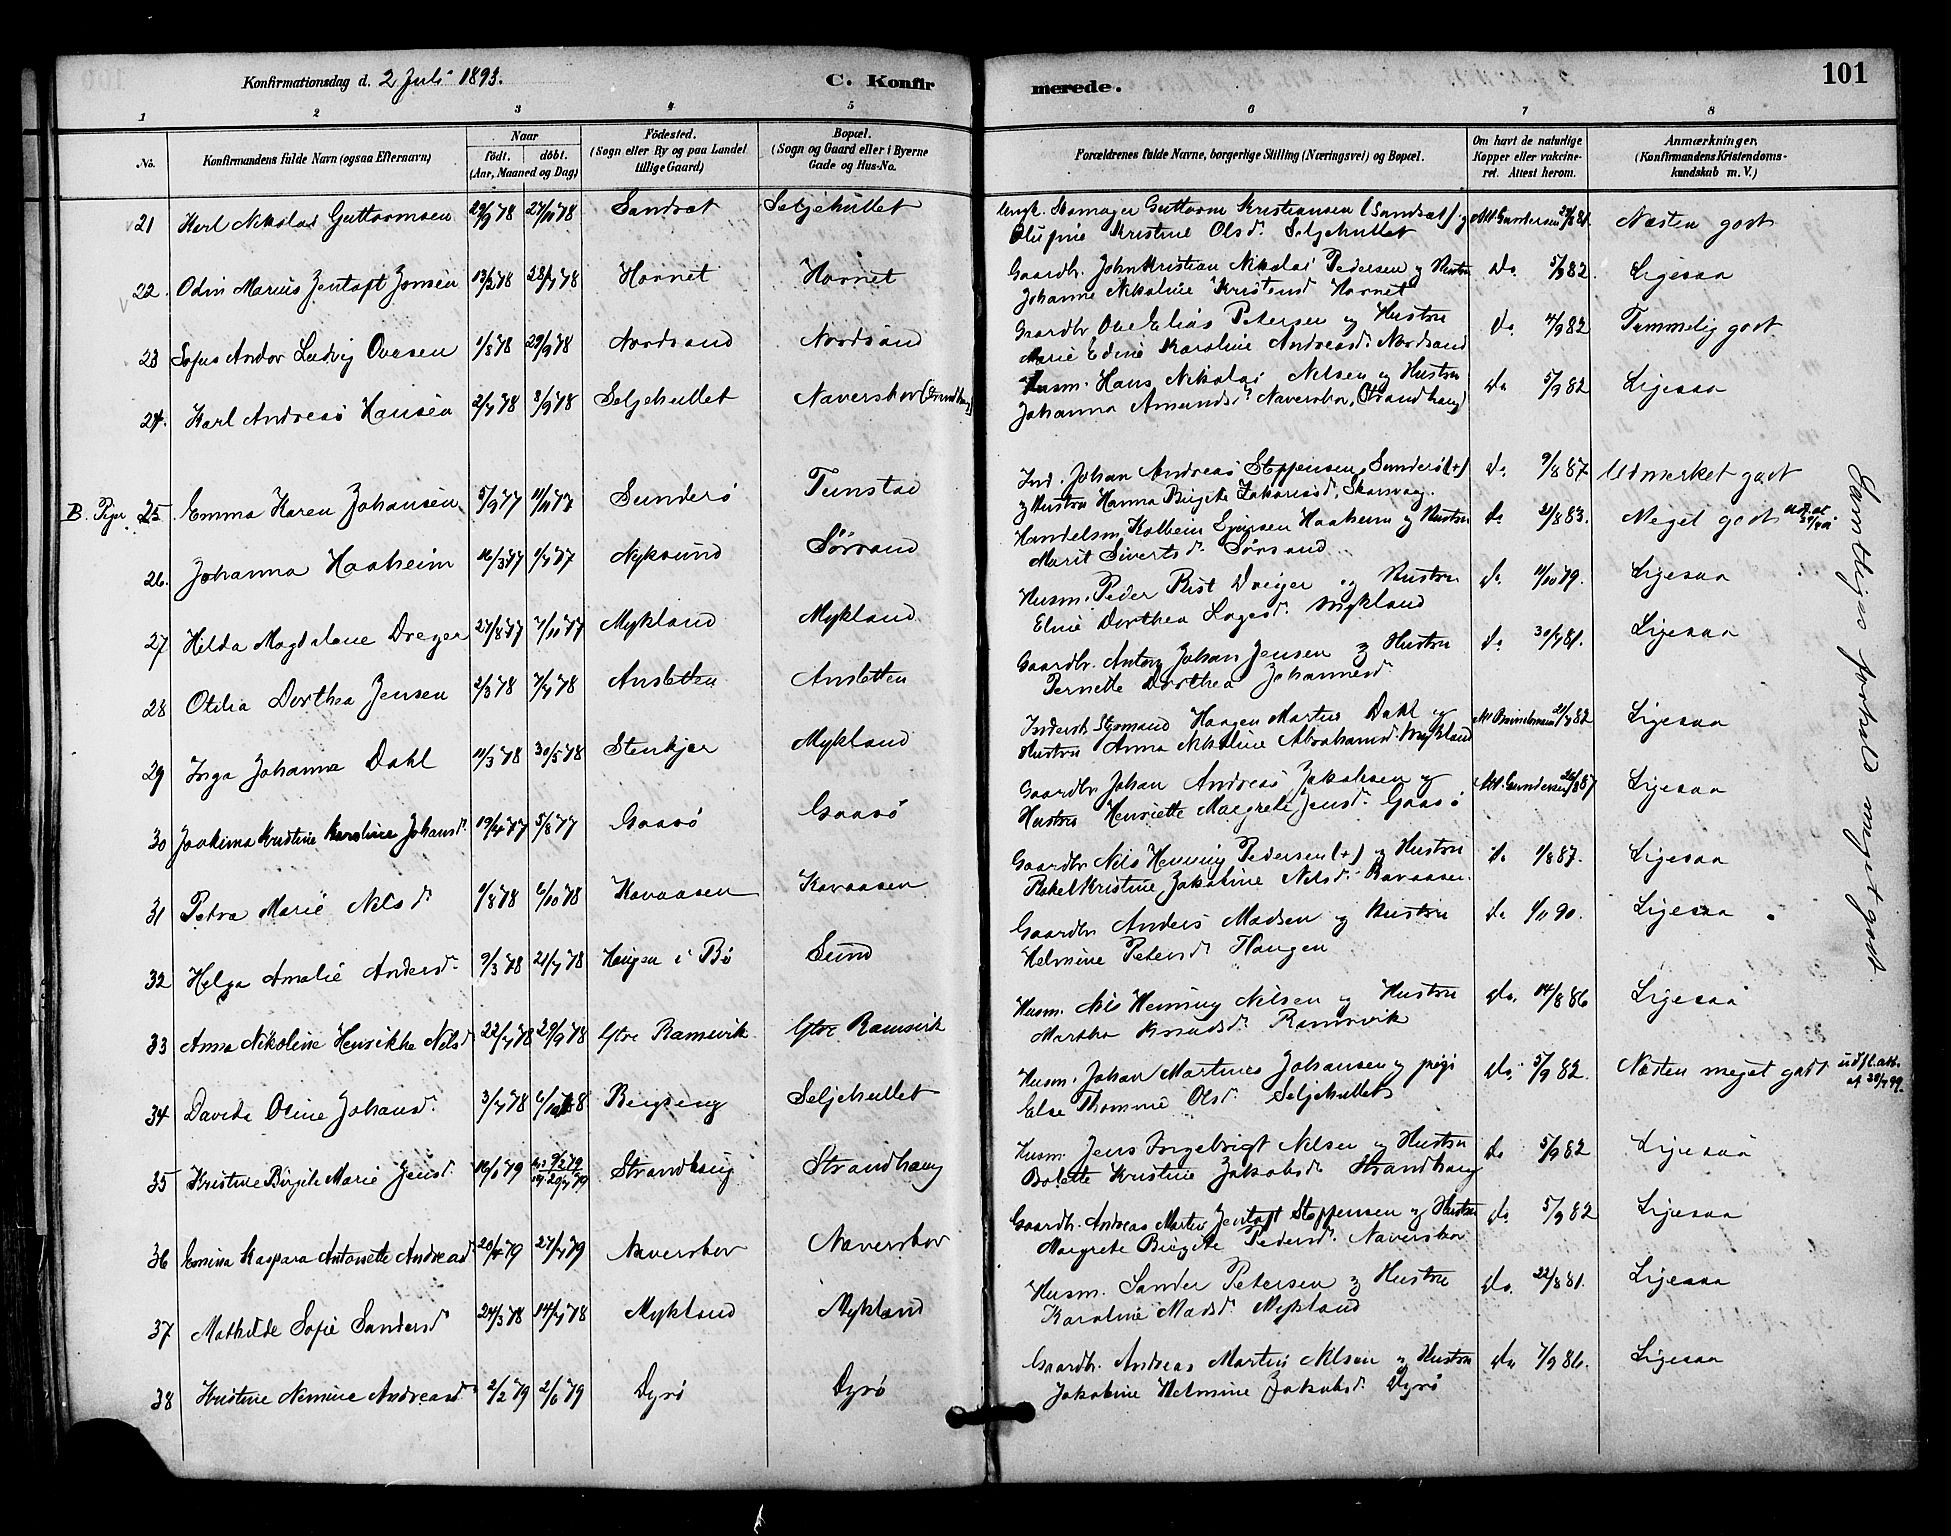 Konfirmationsdag d. 2 Juli 1893.
C. Konfirmerede.
101
1 2 3 4 5 6 7 8
No.
Konfirmandens fulde Navn (ogsaa Efternavn)
Naar
födt. döbt.
(Aar, Maaned og Dag)
Födested.
(Sogn eller By og paa Landet
tillige Gaard)
Bopæl.
(Sogn og Gaard eller i Byerne
Gade og Hus-No.
Forældrenes fulde Navne, borgerlige Stilling (Næringsvei) og Bopæl.
Om havt de naturlige
Kopper eller vakcine-
ret. Attest herom.
Anmærkninger.
(Konfirmandens Kristendoms-
kundskab m. V.)
21 Karl Nikolai Guttormsen 29/9 78 27/11 78 Sandset Seljehullet
Ungk. Skomager Guttorm Kristiansen (Sandset) og
Olufine Kristine Olsd. Seljehullet
Næsten godt
22. Odin Marius Jentoft Jonsen 13/2 78 28/4 78 Hovnet Hovnet
Gaardbr. John Kristian Nikolai Pedersen og Hustru
Johanne Nikoline Kristensd Hovnet
Do 5/9 82. Ligesaa
23 Sofus Andor Ludvig Ovesen 1/8 78 29/9 78 Nordsand Nordsand
Gaardbr Ove Elias Petersen og Hustru
Marie Edine Karoline Andreasd. Nordsand
Do 4/9 82 Temmelig godt
24. Karl Andreas Hansen 2/7 78 8/9 78 Seljehullet Naverskov (Strandhaug)
Husm. Hans Nikolai Nelsen og Hustru
Johanna Amundsd. Naverskov, (Strandhaug)
Do 5/9 82 Ligesaa
B. Piger 25 Emma Karen Johansen 5/9 77 11/11 77 Sunderö Tunstad
Ind. Johan Andreas Steffensen, Sunderö (+)
og Hustru Hanna Birgite Zakariasd, Skarvaag.
Do 9/8 87. Udmerket godt
26. Johanna Haaheim 16/3 77 1/7 77 Nyksund Sörsand
Handelsm. Kolbein Haaheim og Hustru
Marit Sivertsd. Sörsand
Do 21/8 83. Meget godt
27 Hilda Magdalene Dreyer 27/8 77 7/10 77 Mykland Mykland
Husm. Peder Rist Dreyer og Hustru
Eline Dorthea Lagesd. Mykland
Do 11/10 79. Ligesaa
28 Otilia Dorthea Jensen 2/3 78 7/4 78 Ansletten Ansletten
Gaardbr. Anton Johan Jensen og Hustru
Pernette Dorthea Johannesd
Do 30/7 81. Ligesaa
29 Inga Johanna Dahl 11/3 78 30/5 78 Stenkjer Mykland
Haagen Martin Dahl og
Hustru Anna Nikoline Abrahamsd. Mykland
Ligesaa
30 Joakima Kristine Karoline Johansd. 19/4 77 5/8 77 Gaasö Gaasö
Gaardbr Johan Andreas Jakobsen og
Hustru Henriette Margrete Jensd. Gaasö
Ligesaa
31 Petra Marie Nelsd. 1/8 78 6/10 78 Kavaasen Kavaasen
Gaardbr Nils Henning Pedersen (+) og Hustru
Rakel Kristine Jakobine Nelsd. Kavaasen.
Do 1/8 87. Ligesaa
32 Helga Amalie Andersd. 9/3 78 21/7 78 Haugen i Bö Sund
Gaardbr Anders Madsen og Hustru
Helmine Petersd Haugen
Do 1/11 90. Ligesaa
33 Anna Nikoline Henrikke Nilsd 22/7 78 29/9 78 Ytre Ramsvik Ytre Ramsvik
Husm. Nils Henning Nilsen og Hustru
Martha Knudsd. Ramsvik
Do. 14/8 86 Ligesaa
34 Davida Oline Johansd. 3/7 78 6/10 78 Bergseng Seljehullet
Husm. Johan Martines Johansen og pige
Else Thomine Olsd. Seljehullet
Do. 5/9 82. Næsten meget godt udfl. att. af 30/7 99.
35 Kristine Birgite Marie Jensd. 16/1 79 9/2 79 20/7 79 Strandhaug Strandhaug
Husm. Jens Ingebrigt Nilsen og Hustru
Bolette Kristine Jakobsd. Strandhaug
Do 5/9 82 Ligesaa
36 Emina Kaspara Antonette Andreasd 20/4 79 27/7 79 Naverskov Naverskov
Gaardbr. Andreas Martin Jentoft Steffensen og Hustru
Margrete Birgite Pedersd. Naverskov
Do 5/9 82 Ligesaa
37 Mathilde Sofie Sandersd 24/3 78 14/7 78 Mykland Mykland
Husm. Sander Petersen og Hustru
Karoline Madsd. Mykland
Do. 22/8 81. Ligesaa
38 Kristine Nemine Andreasd 2/2 79 2/6 79 Dyrö Dyrö
Gaardbr. Andreas Martin Nilsen og Hustru
Jakobine Helmine Jakobsd. Dyrö
Do 7/9 86. Ligesaa
Samtliges forhold meget godt